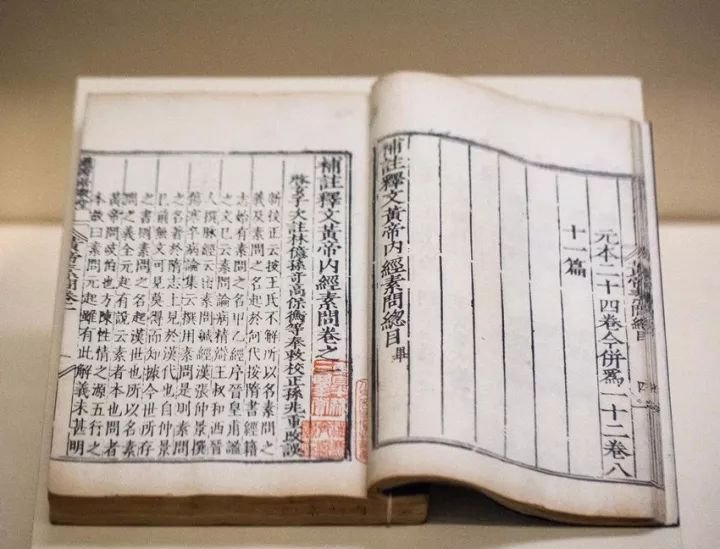 元本二十四卷今併爲一十二卷八
十一篇
補註釋文黃帝內經素問總目 畢
補註釋文黃帝內經素問卷之一
啓玄子次註林億孫奇高保衡等奉敕校正孫兆重改誤
新校正云按王氏不解所以名素問之
義及素問之名起於何代按隋書經籍
志始有素問之名甲乙經序晉皇甫謐
之文已云素問論病精辯王叔和西晉
人撰脉經云出素問鍼經漢張仲景撰
傷寒卒病論集云撰用素問是則素問
之名著於隋志上見於漢代也自仲景
已前無文可見莫得而知據今世所存
之書則素問之名起漢世也所以名素
問之義全元起有說云素者本也問者
黃帝問岐伯也方陳性情之源五行之
本故曰素問元起雖有此解義未甚明